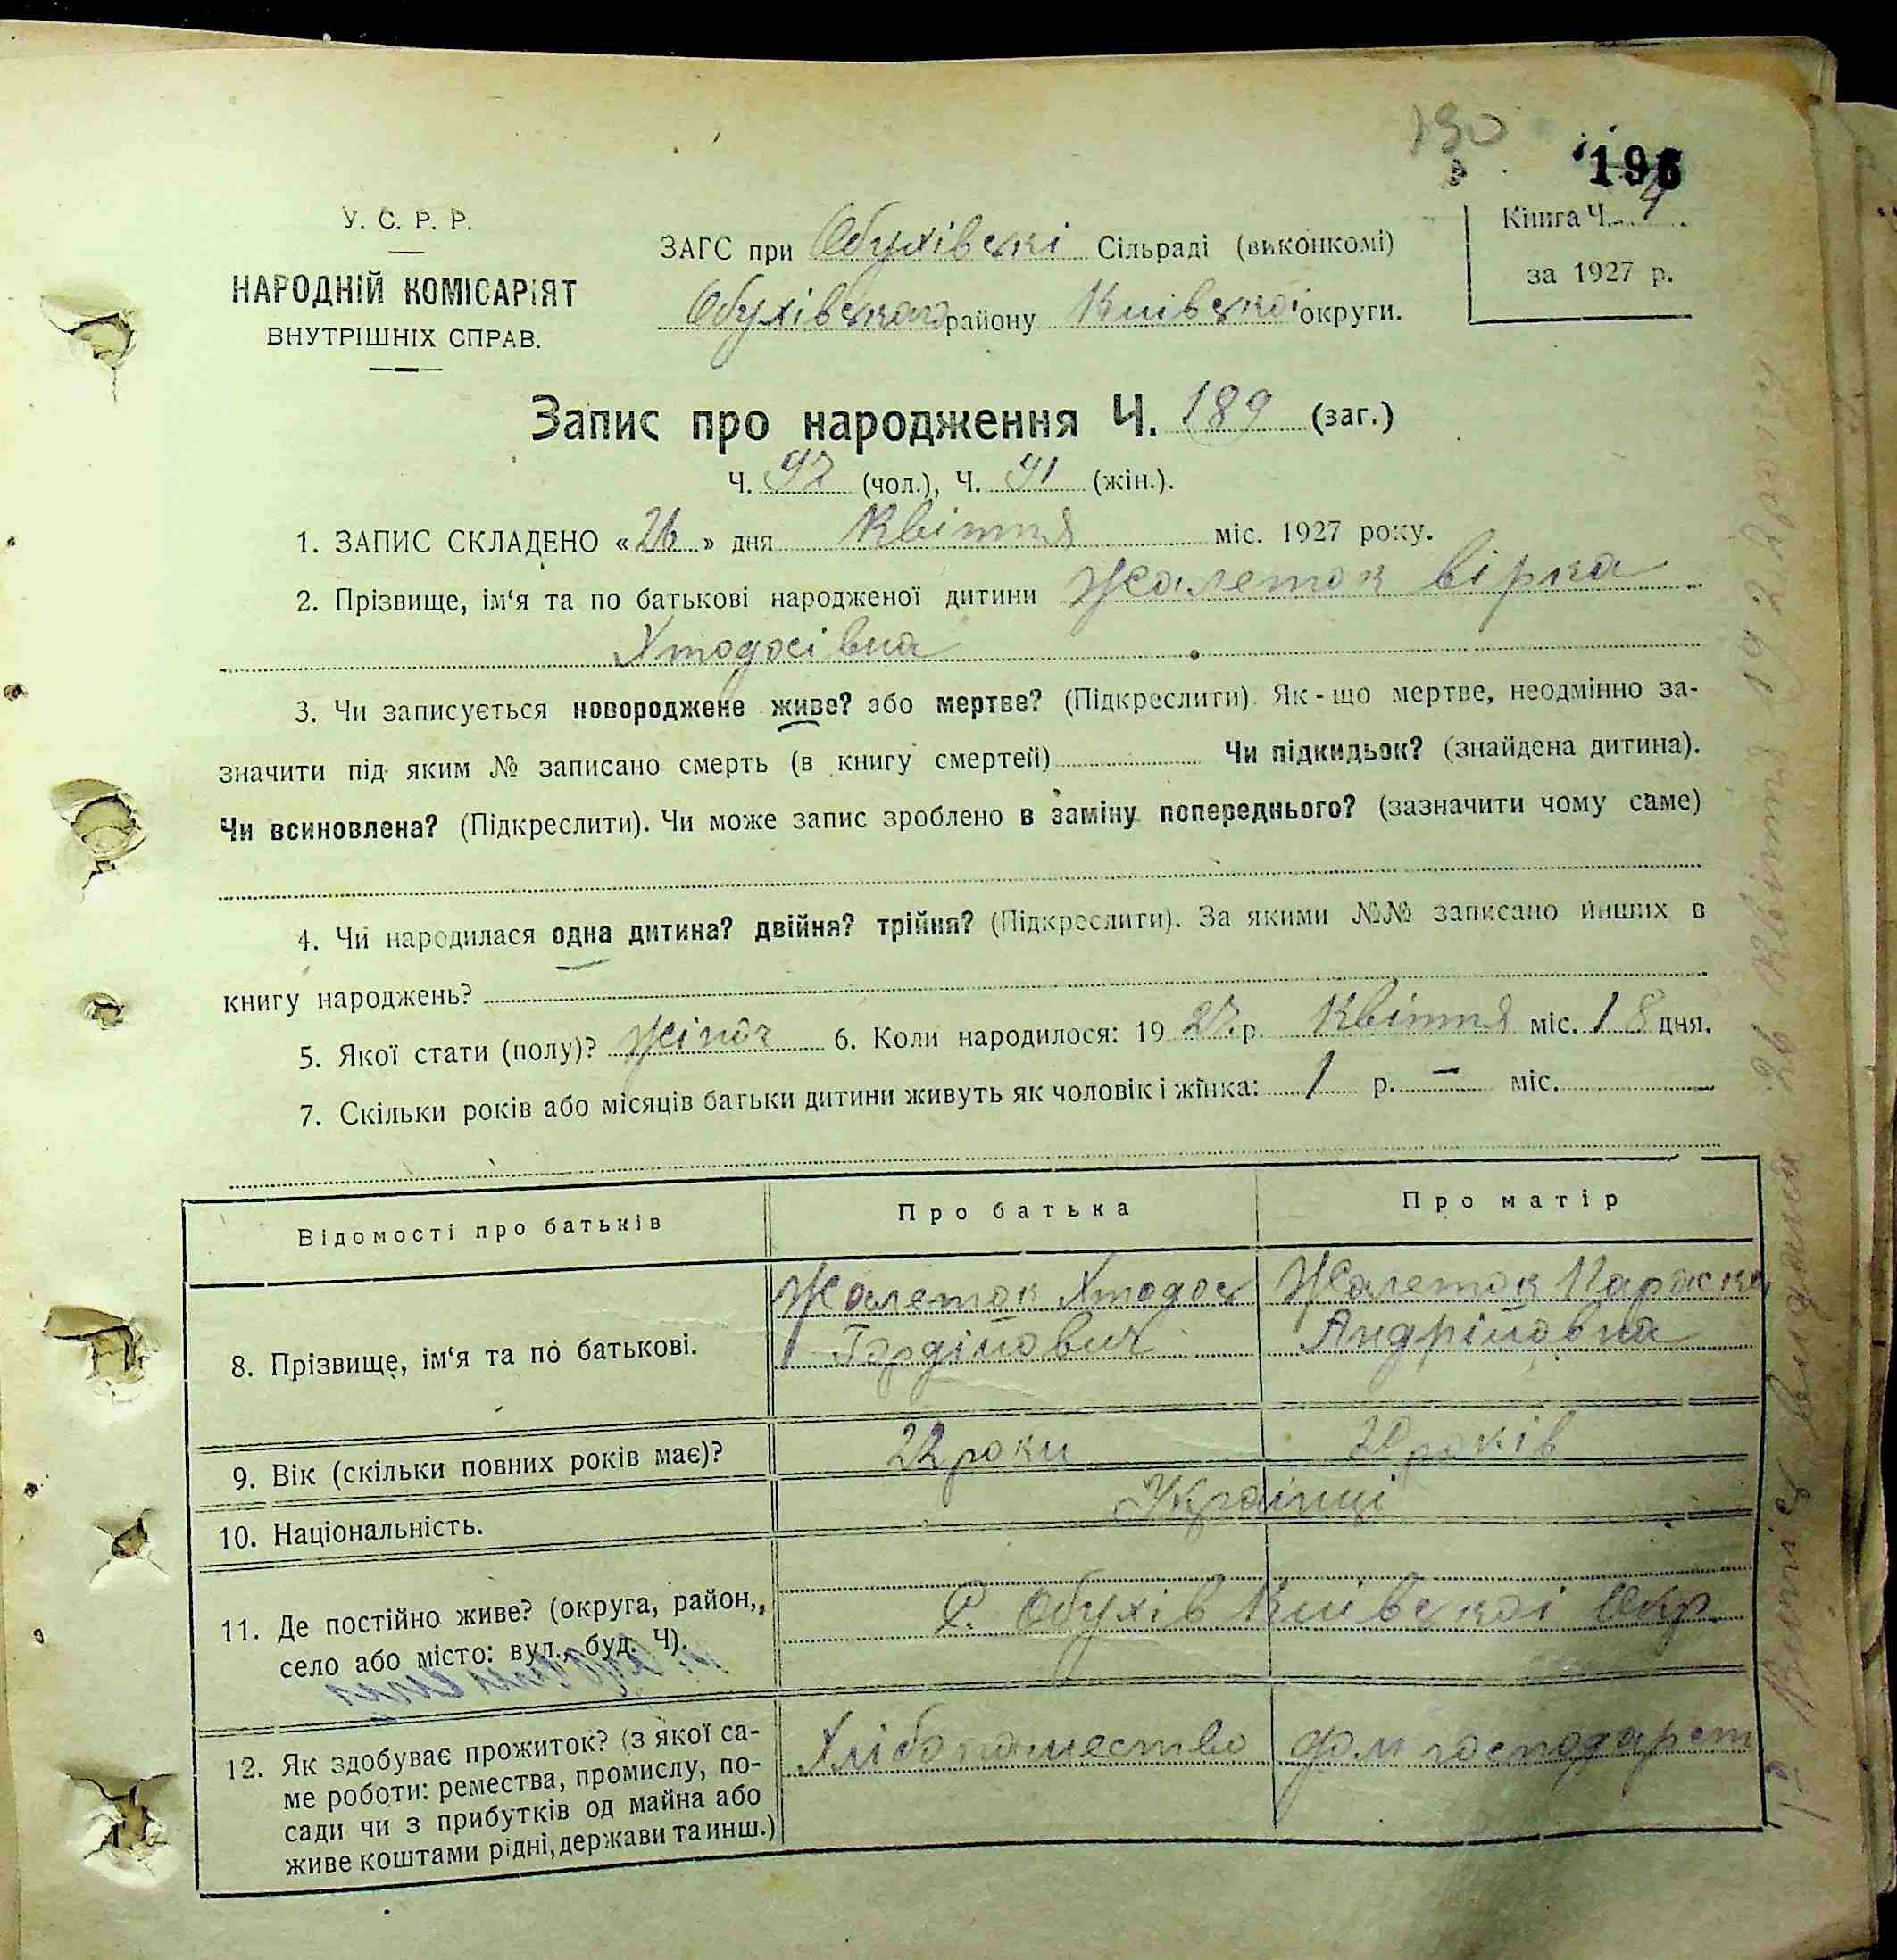 190
196
У. С. Р. Р.
НАРОДНІЙ КОМІСАРІЯТ
ВНУТРІШНІХ СПРАВ.
ЗАГС при Обухівскі Сільраді (виконкомі)
Обухівского району Київскої округи.
Книга Ч. 4
за 1927 р.
Запис про народження Ч. 189 (заг.)
Ч. 97 (чол.), Ч. 91 (жін.).
1. ЗАПИС СКЛАДЕНО «26» дня Квітня міс. 1927 року.
2. Прізвище, ім‘я та по батькові народженої дитини Жалеток вірка
Хтодосівна
3. Чи записується новороджене живе? або мертве? (Підкреслити). Як-що мертве, неодмінно за-
значити під яким № записано смерть (в книгу смертей) Чи підкидьок? (знайдена дитина).
Чи всиновлена? (Підкреслити). Чи може запис зроблено в заміну попереднього? (зазначити чому саме)
4. Чи народилася одна дитина? двійня? трійня? (Підкреслити). За якими №№ записано инших в
книгу народжень?
5. Якої стати (полу)? жіноч 6. Коли народилося: 1927.р. Квітня міс. 18 дня.
7. Скільки років або місяців батьки дитини живуть як чоловік і жінка: 1 р. — міс.
Відомості про батьків
Про батька
Про матір
8. Прізвище, ім‘я та по батькові.
Жалеток Хтодос
Гордійович
Жалеток Параска
Андрійовна
9. Вік (скільки повних років має)?
22 роки
20 років
10. Національність.
Українці
11. Де постійно живе? (округа, район,,
село або місто: вул., буд. Ч).
С. Обухів Київскої Окр.
12. Як здобуває прожиток? (з якої са-
ме роботи: ремества, промислу, по-
сади чи з прибутків од майна або
живе коштами рідні, держави та инш.)
Хлібопашество
дом господарст
Витяг виданий 26 Квітня 1927 року